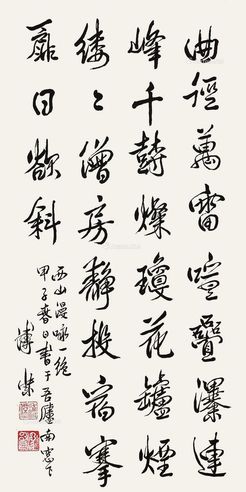 曲徑萬雷喧疊瀑連
峰千樹燦瓊花鑪煙
縷〻僧房靜投宿搴
扉日欲斜
西山漫詠一絕
甲子春日書于吾廬南窗下
溥傑